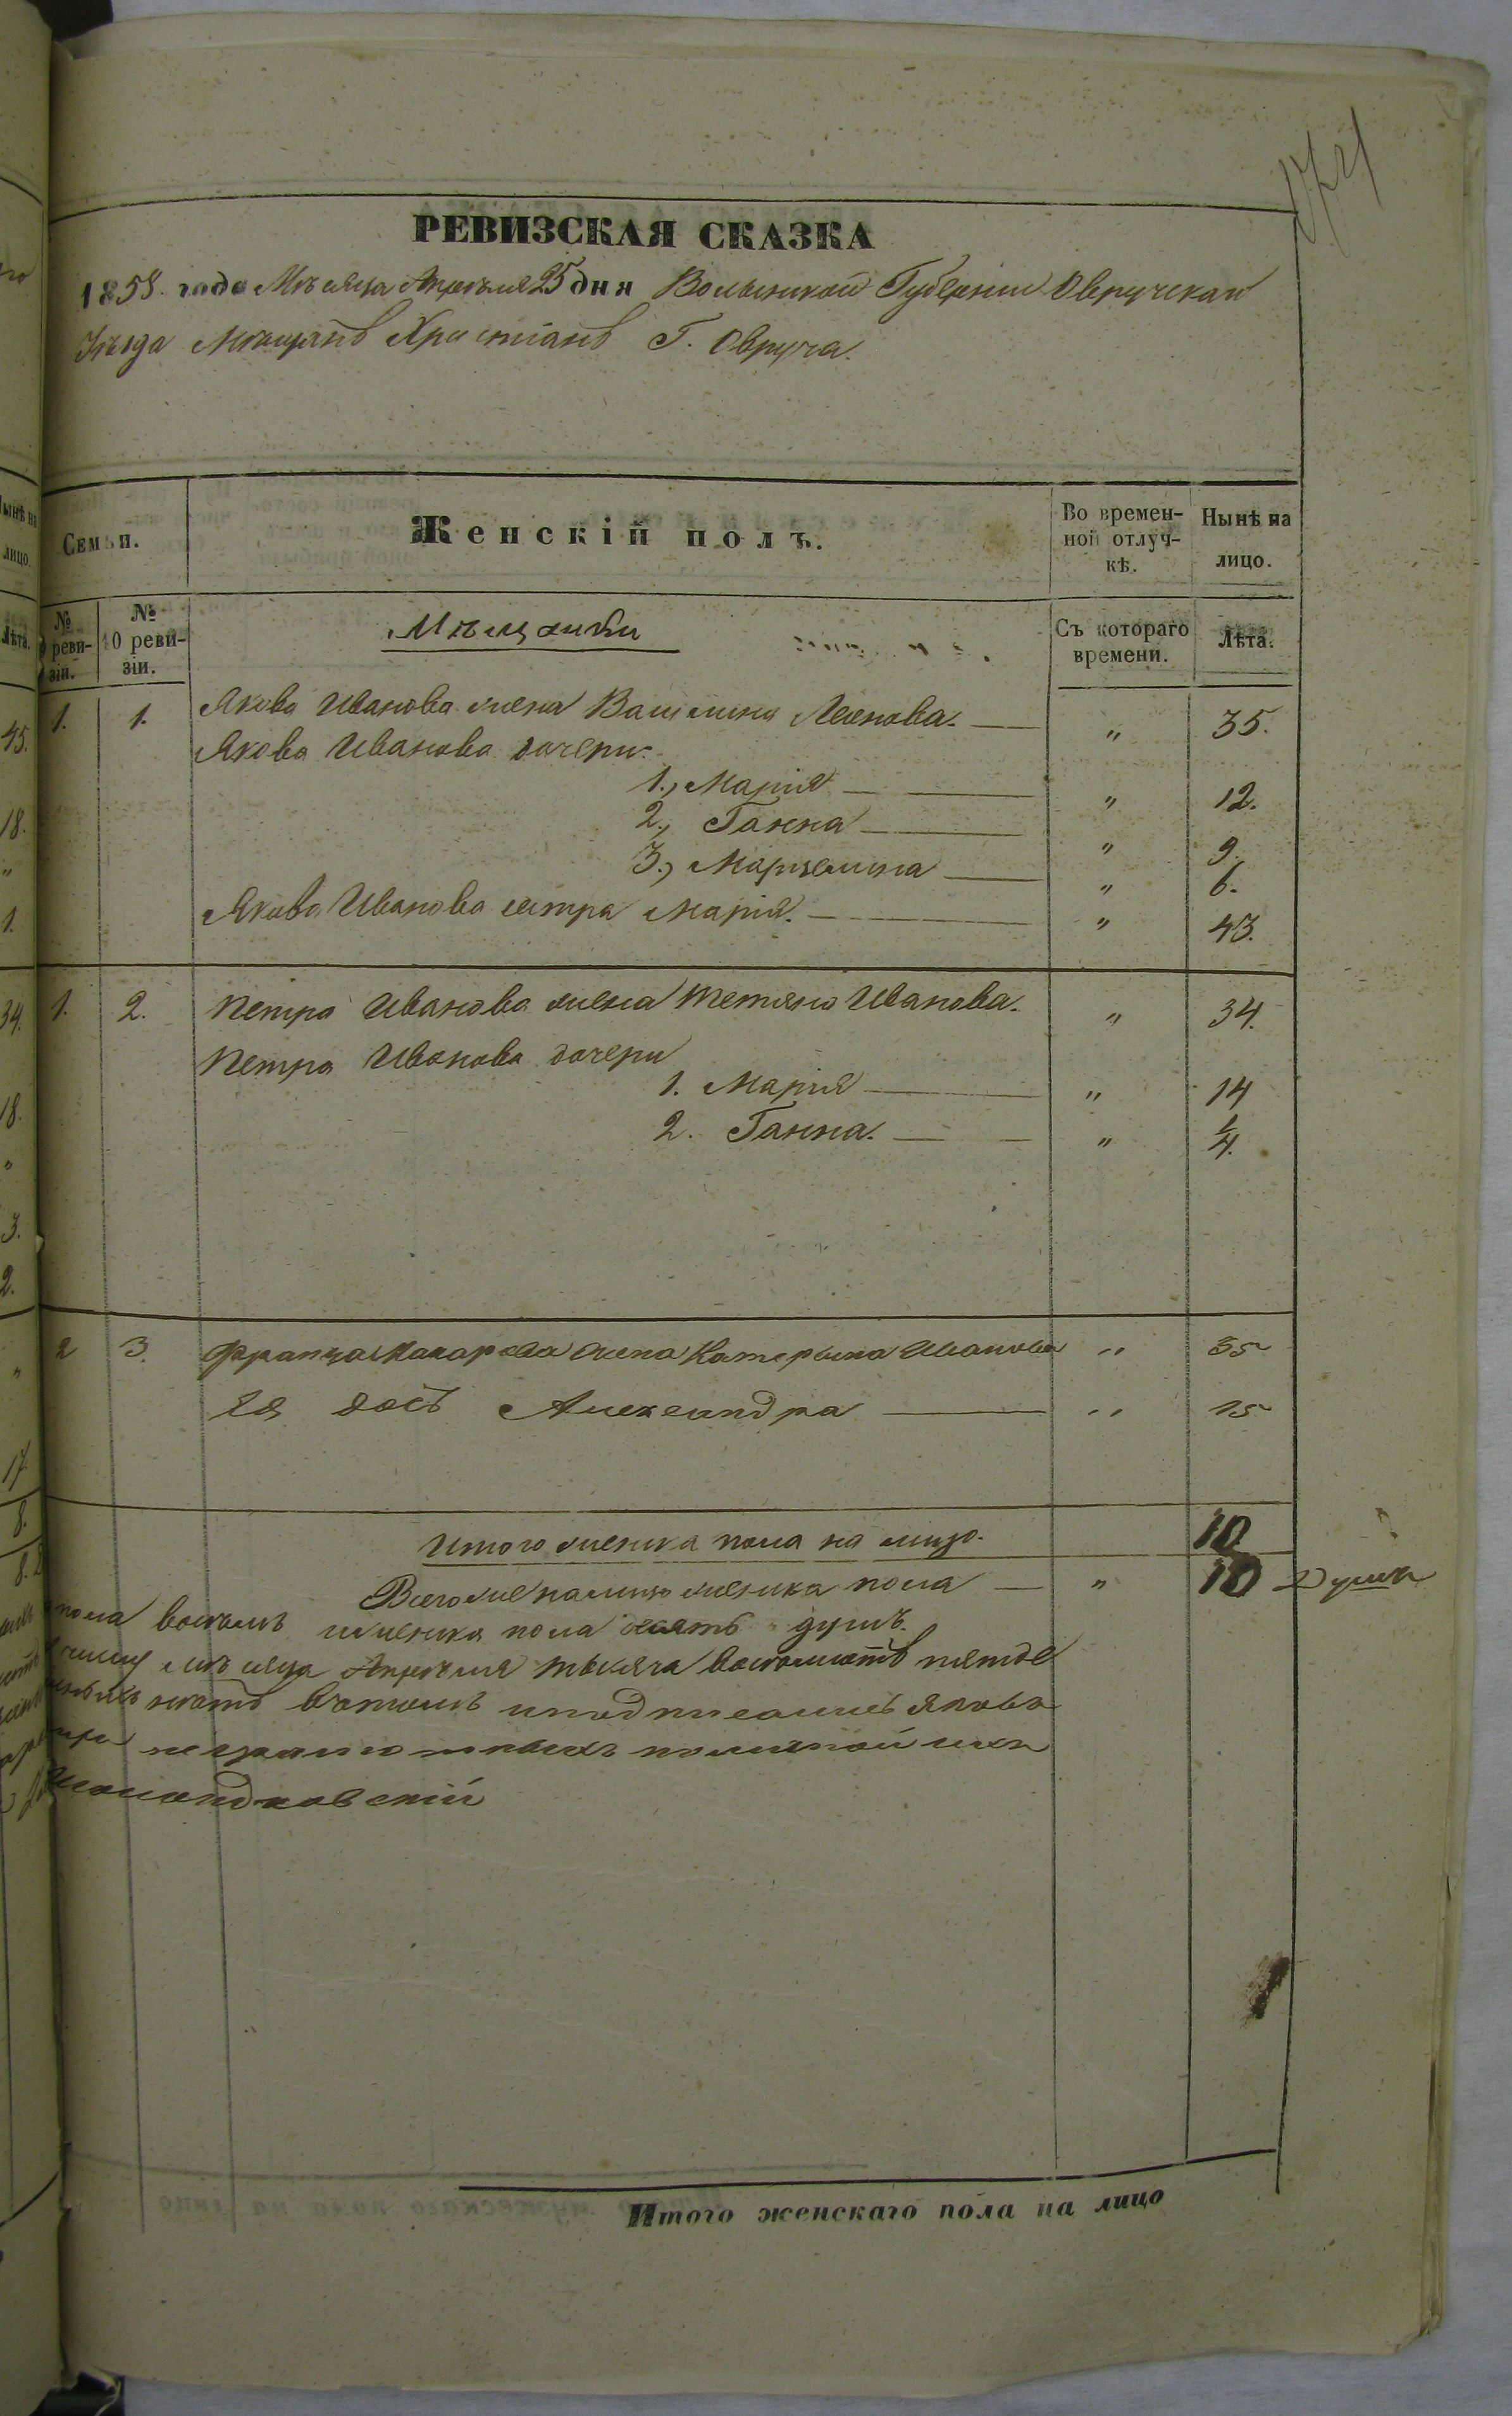 РЕВИЗСКАЯ СКАЗКА
1858. года Мѣсяца Апрѣля 25 дня Волынской Губерніи Овручскаго
Уѣзда Мѣщанъ Христіанъ Г. Овруча.
Семьи.
Женскій полъ.
Во времен-
ной отлуч-
кѣ.
Нынѣ на
лицо.
№
реви-
зіи.
№
10 реви-
зіи.
Мѣщанки
Съ котораго
времени.
Лѣта.
1. 1. Якова Иванова жена Леонова. " 35.
Якова Иванова дочери:
1., Марія " 12.
2., Ганна " 9.
3., Марцелина " 6.
Якова Иванова сестра Марія. " 43.
1. 2. Петра Иванова жена Тетяна Иванова. " 34.
Петра Иванова дочери
1. Марія " 14
2. Ганна. " 1/4.
2 3. Франца Макарова жена Катерына Иванова " 35
Его дочь Александра " 15
Итого женска пола на лицо. 10
Всего же налицо женска пола " 10 Душъ
пола восемь и женска пола десять душъ.
мѣсяца Апрѣля тысяча восемьсотъ пятде
въ томъ и подписались Якова
неграмотныхъ
Итого женскаго пола на лицо